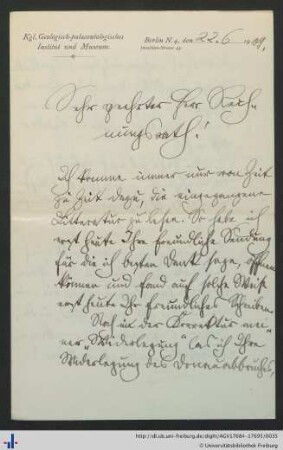 Kgl. Geologisch-palaeontologisches
Institut und Museum.
Berlin N. 4, den 22. 6. 1909.
Invalidenstrasse 43.
Sehr geehrter Herr Rech-
nungsrath!
Ich komme immer nur von Zeit
zu Zeit dazu, die eingegangene
Litteratur zu lesen. So habe ich
erst heute Ihre freundliche Sendung
für die ich besten Dank sage, öffnen
können und fand auf solche Weise
erst heute Ihr freundliches Schreiben.
Noch in der Korrektur mei-
ner „Widerlegung" las ich Ihre
Widerlegung des Donauabbruches,
http://dl.ub.uni-freiburg.de/diglit/
Universitätsbibliothek Freiburg